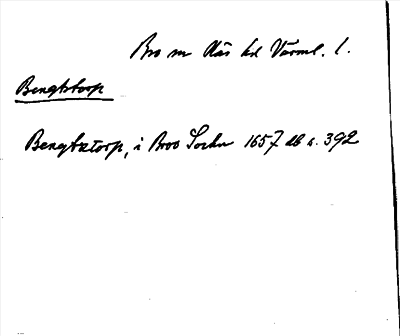 Bro sn Näs hd Värml. l.
Bengtstorp
Bengtztorp, i Broo Sochn 1657 db s. 392